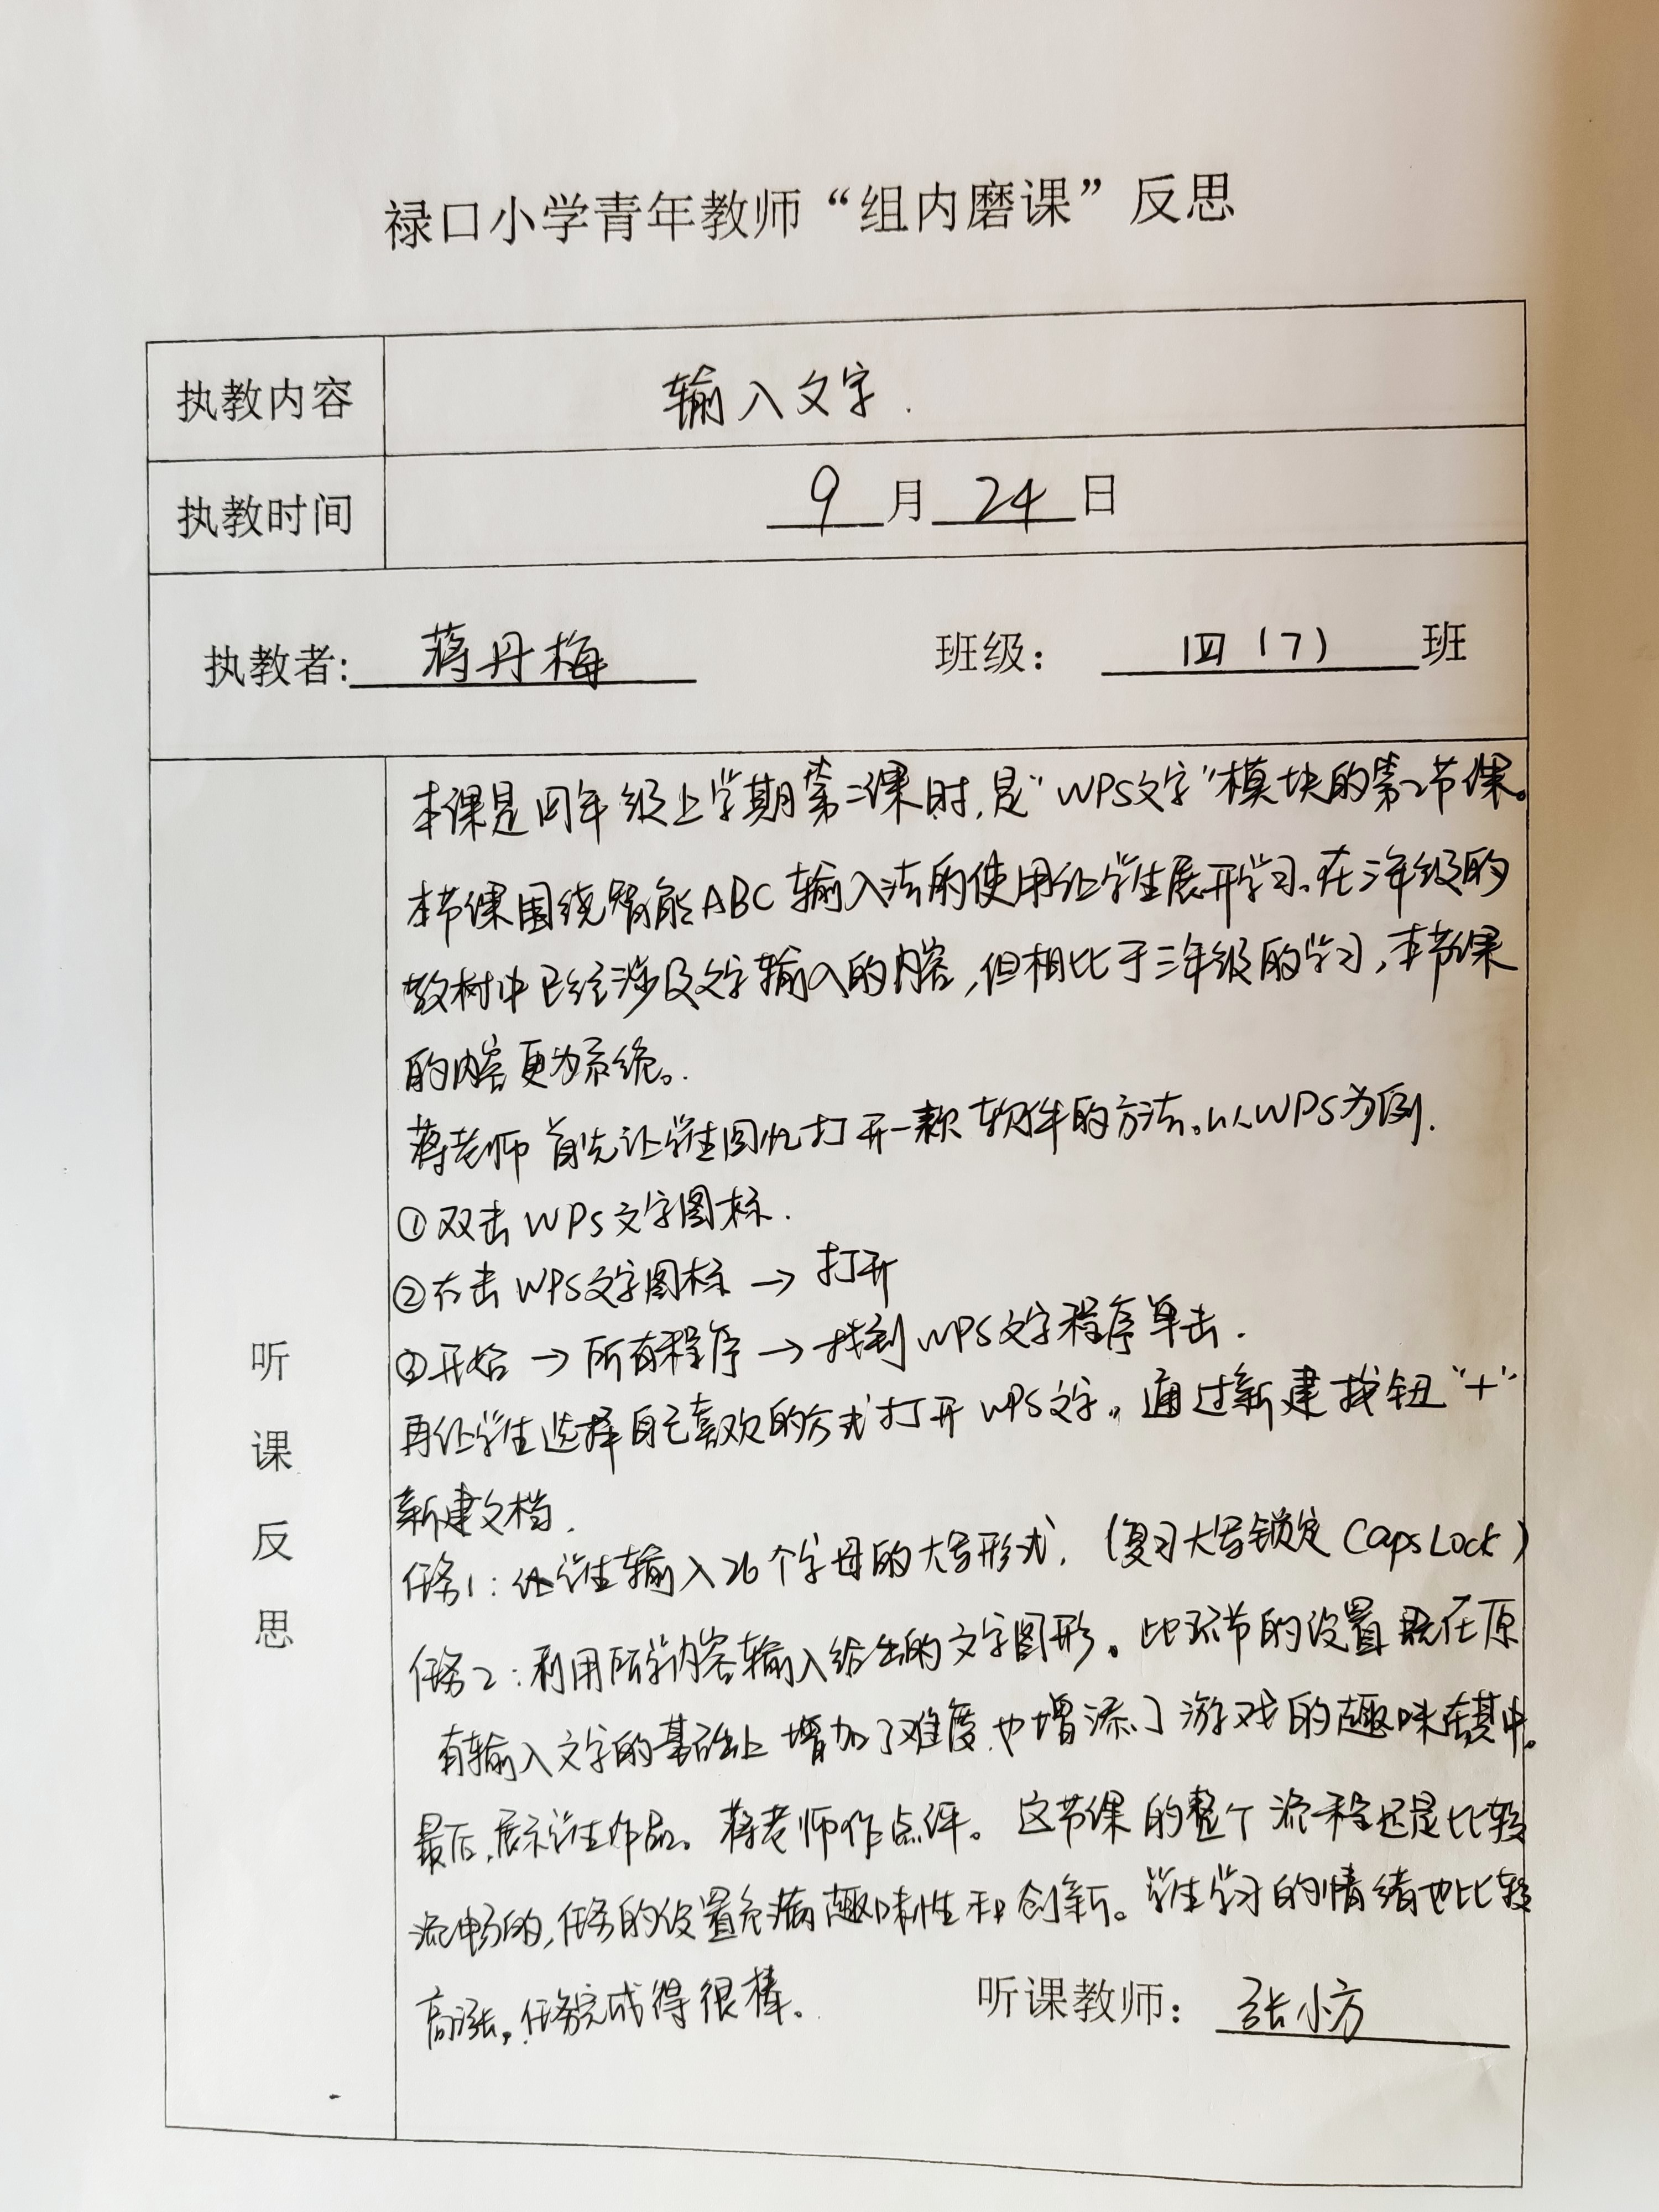 禄口小学青年教师“组内磨课”反思
执教内容 输入文字.
执教时间 9月24日
执教者：蒋丹梅 班级：四（7）班
听课反思
本课是四年级上学期第二课时,是“WPS文字”模块的第二节课。
本节课围绕智能ABC输入法的使用给学生展开学习.在三年级的
教材中已经涉及文字输入的内容,但相比于三年级的学习,本节课
的内容更为系统。
蒋老师首先让学生回忆打开一款软件的方法.以WPS为例.
①双击WPS文字图标.
②右击WPS文字图标→打开
③开始→所有程序→找到WPS文字程序单击.
再让学生选择自己喜欢的方式打开WPS文字。通过新建按钮“+”
新建文档.
任务1：让学生输入26个字母的大写形式.（复习大写锁定CapsLock）
任务2：利用所学内容输入给出的文字图形。此环节的设置既在原
有输入文字的基础上增加了难度,也增添了游戏的趣味在其中.
最后,展示学生作品。蒋老师作点评。这节课的整个流程还是比较
流畅的,任务的设置充满趣味性和创新。学生学习的情绪也比较
高涨,任务完成得很棒.
听课教师：张小方